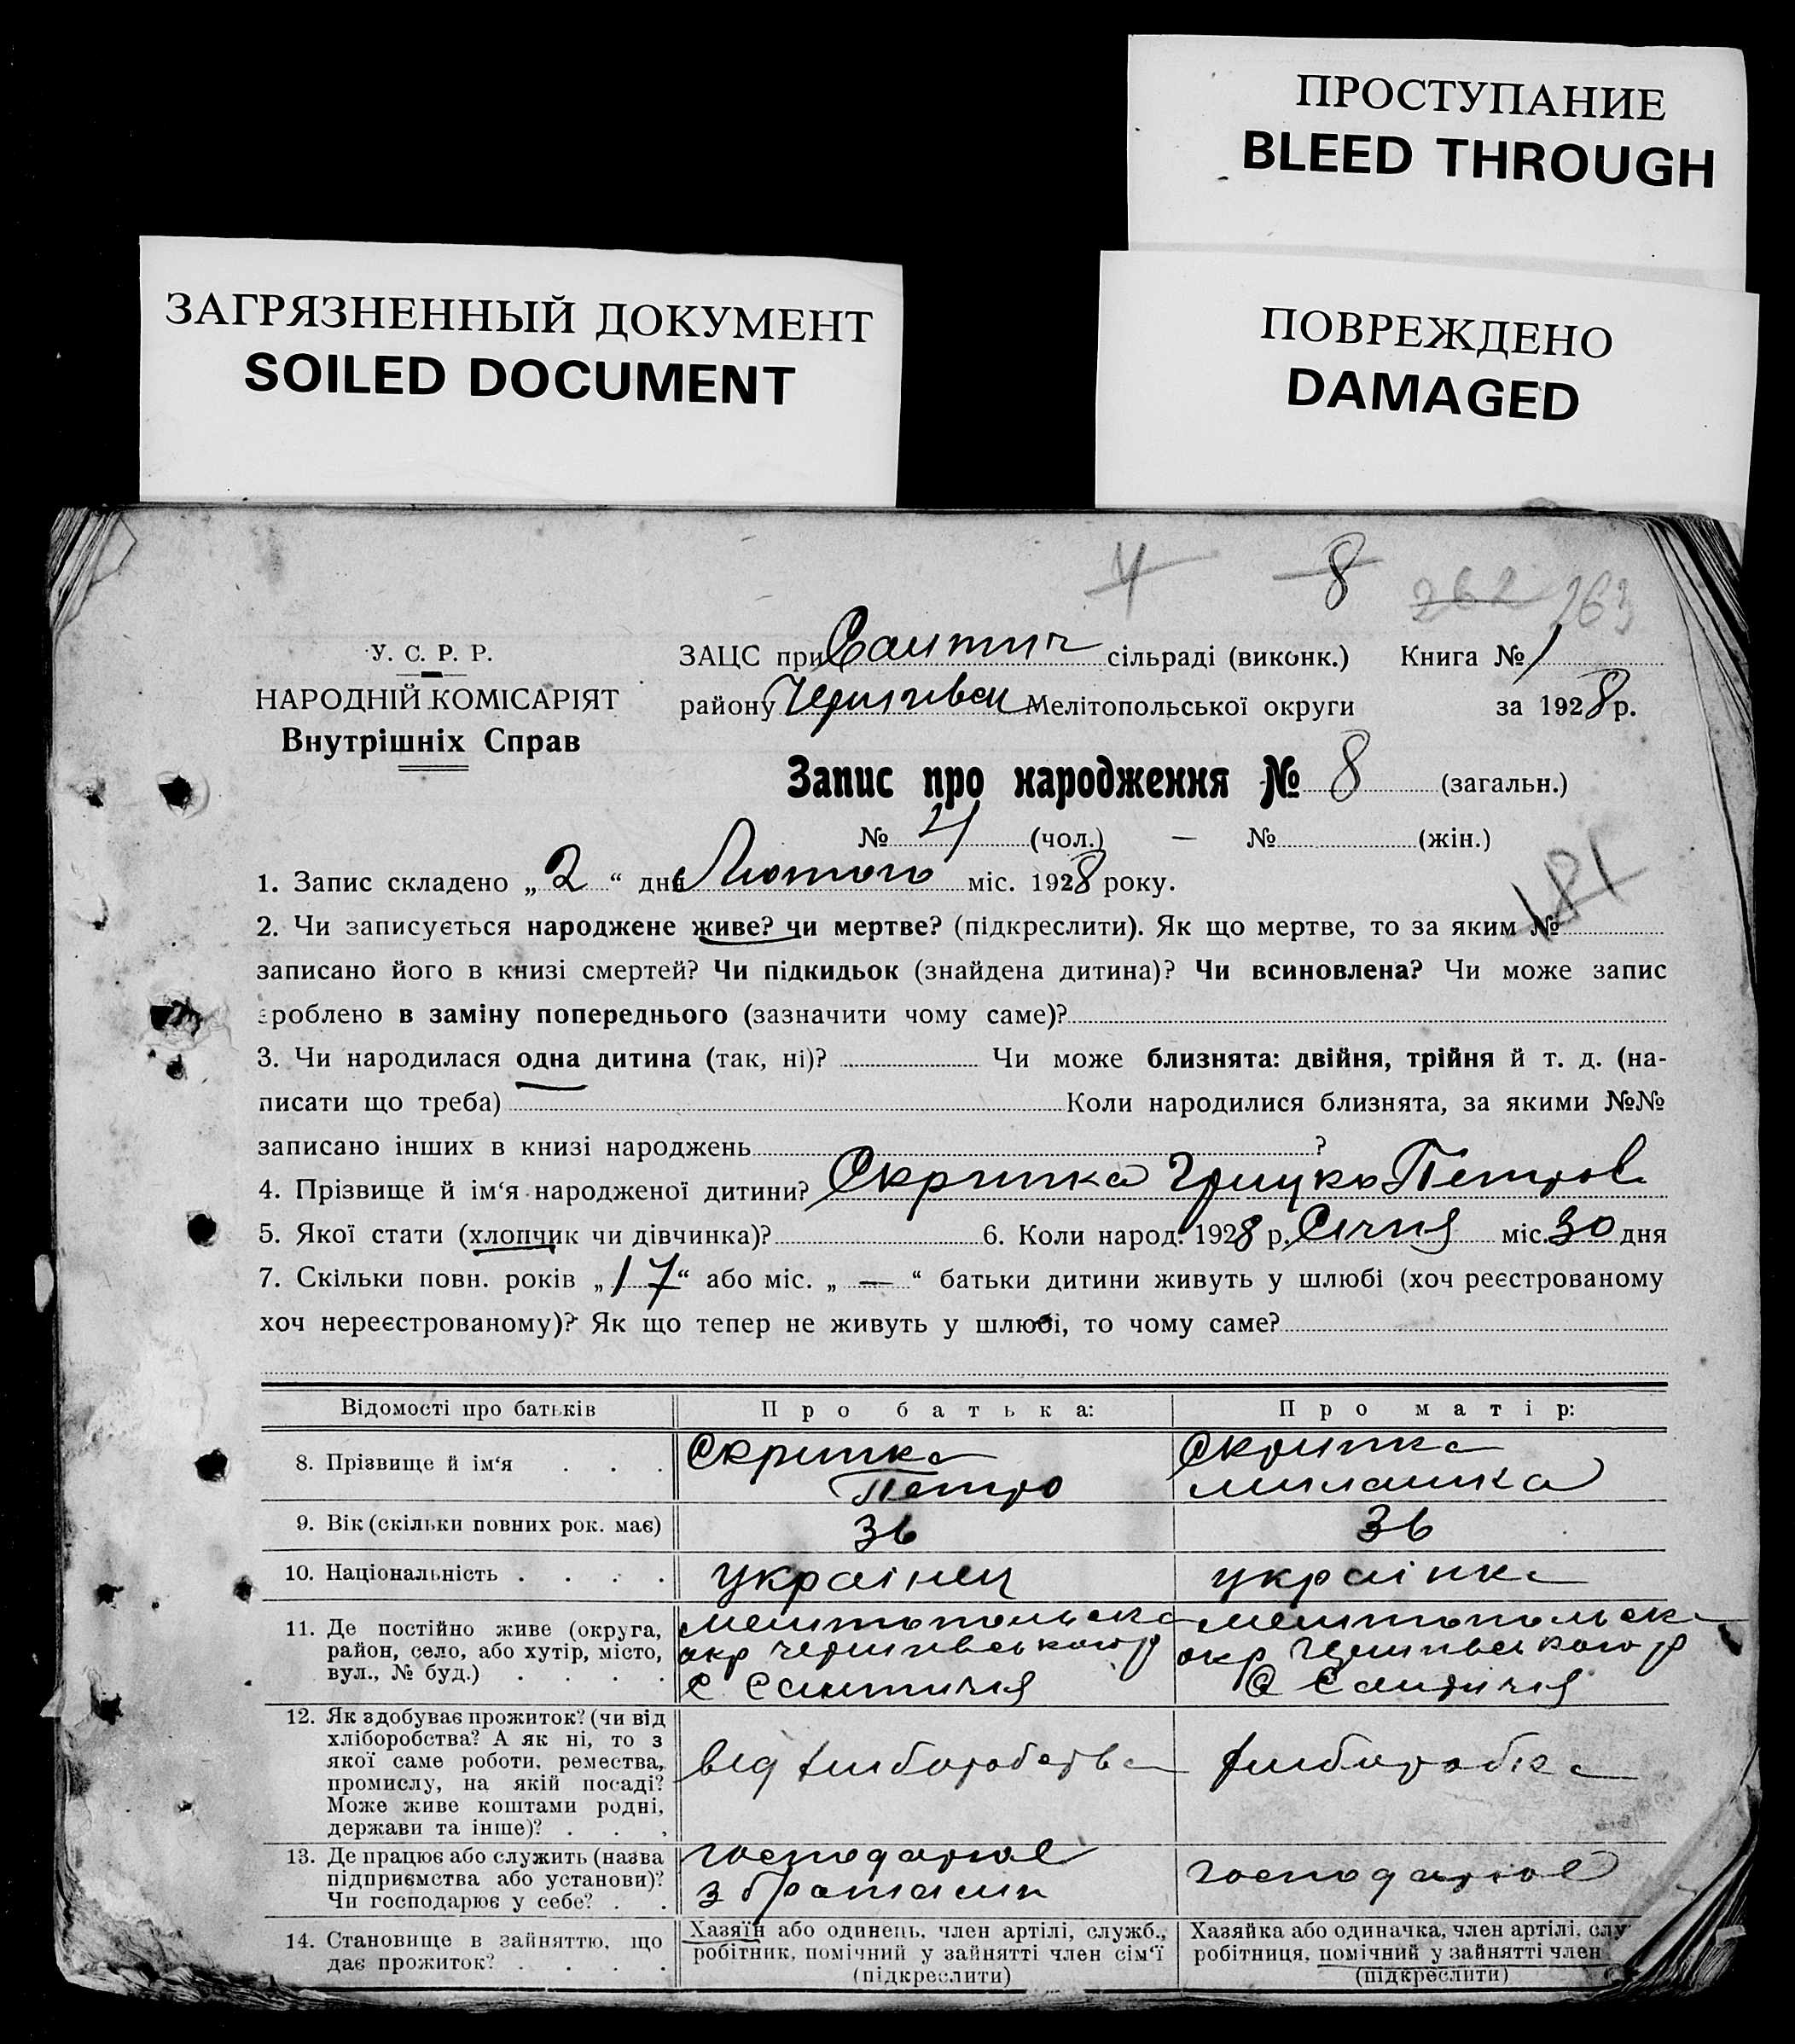 ПРОСТУПАНИЕ
BLEED THROUGH
ЗАГРЯЗНЕННЫЙ ДОКУМЕНТ
SOILED DOCUMENT
ПОВРЕЖДЕНО
DAMAGED
4 8 262 263
У. С. Р. Р.
НАРОДНІЙ КОМІСАРІЯТ
Внутрішніх Справ
ЗАЦС при сільраді (виконк.) Книга № 1
району Мелітопольської округи за 1928 р.
Запис про народження № 8 (загальн.)
№ 4 (чол.) — № (жін.)
181
1. Запис складено „2“ дня Лютого міс. 1928 року.
2. Чи записується народжене живе? чи мертве? (підкреслити). Як що мертве, то за яким №
записано його в книзі смертей? Чи підкидьок (знайдена дитина)? Чи всиновлена? Чи може запис
зроблено в заміну попереднього (зазначити чому саме)?
3. Чи народилася одна дитина (так, ні)? Чи може близнята: двійня, трійня й т. д. (на-
писати що треба) Коли народилися близнята, за якими №№
записано інших в книзі народжень ?
4. Прізвище й ім‘я народженої дитини? Скрипка Грицко Петров
5. Якої стати (хлопчик чи дівчинка)? 6. Коли народ. 1928 р. Січня міс. 30 дня
7. Скільки повн. років „17“ або міс. „—“ батьки дитини живуть у шлюбі (хоч реєстрованому
хоч нереєстрованому)? Як що тепер не живуть у шлюбі, то чому саме?
Відомості про батьків Про батька: Про матір:
8. Прізвище й ім‘я . . . Скрипка Петро Скрипка Милашка
9. Вік (скільки повних рок. має) 36 36
10. Національність . . . . українец українка
11. Де постійно живе (округа,
район, село, або хутір, місто,
вул., № буд.) . . . .
Мелитопольска Мелитопольска
окр Чернигівського р окр Чернигівського р
с
12. Як здобуває прожиток? (чи від
хліборобства? А як ні, то з
якої саме роботи, ремества,
промислу, на якій посаді?
Може живе коштами родні,
держави та інше)? . . .
від хлиборобства хлиборобка
13. Де працює або служить (назва
підприємства або установи)?
Чи господарює у себе? . .
господарює
з братами
господарює
14. Становище в зайняттю, що
дає прожиток? . . . .
Хазяїн або одинець, член артілі, служб.,
робітник, помічний у зайнятті член сім‘ї
(підкреслити)
Хазяйка або одиначка, член артілі, слу
робітниця, помічний у зайнятті член
(підкреслити)